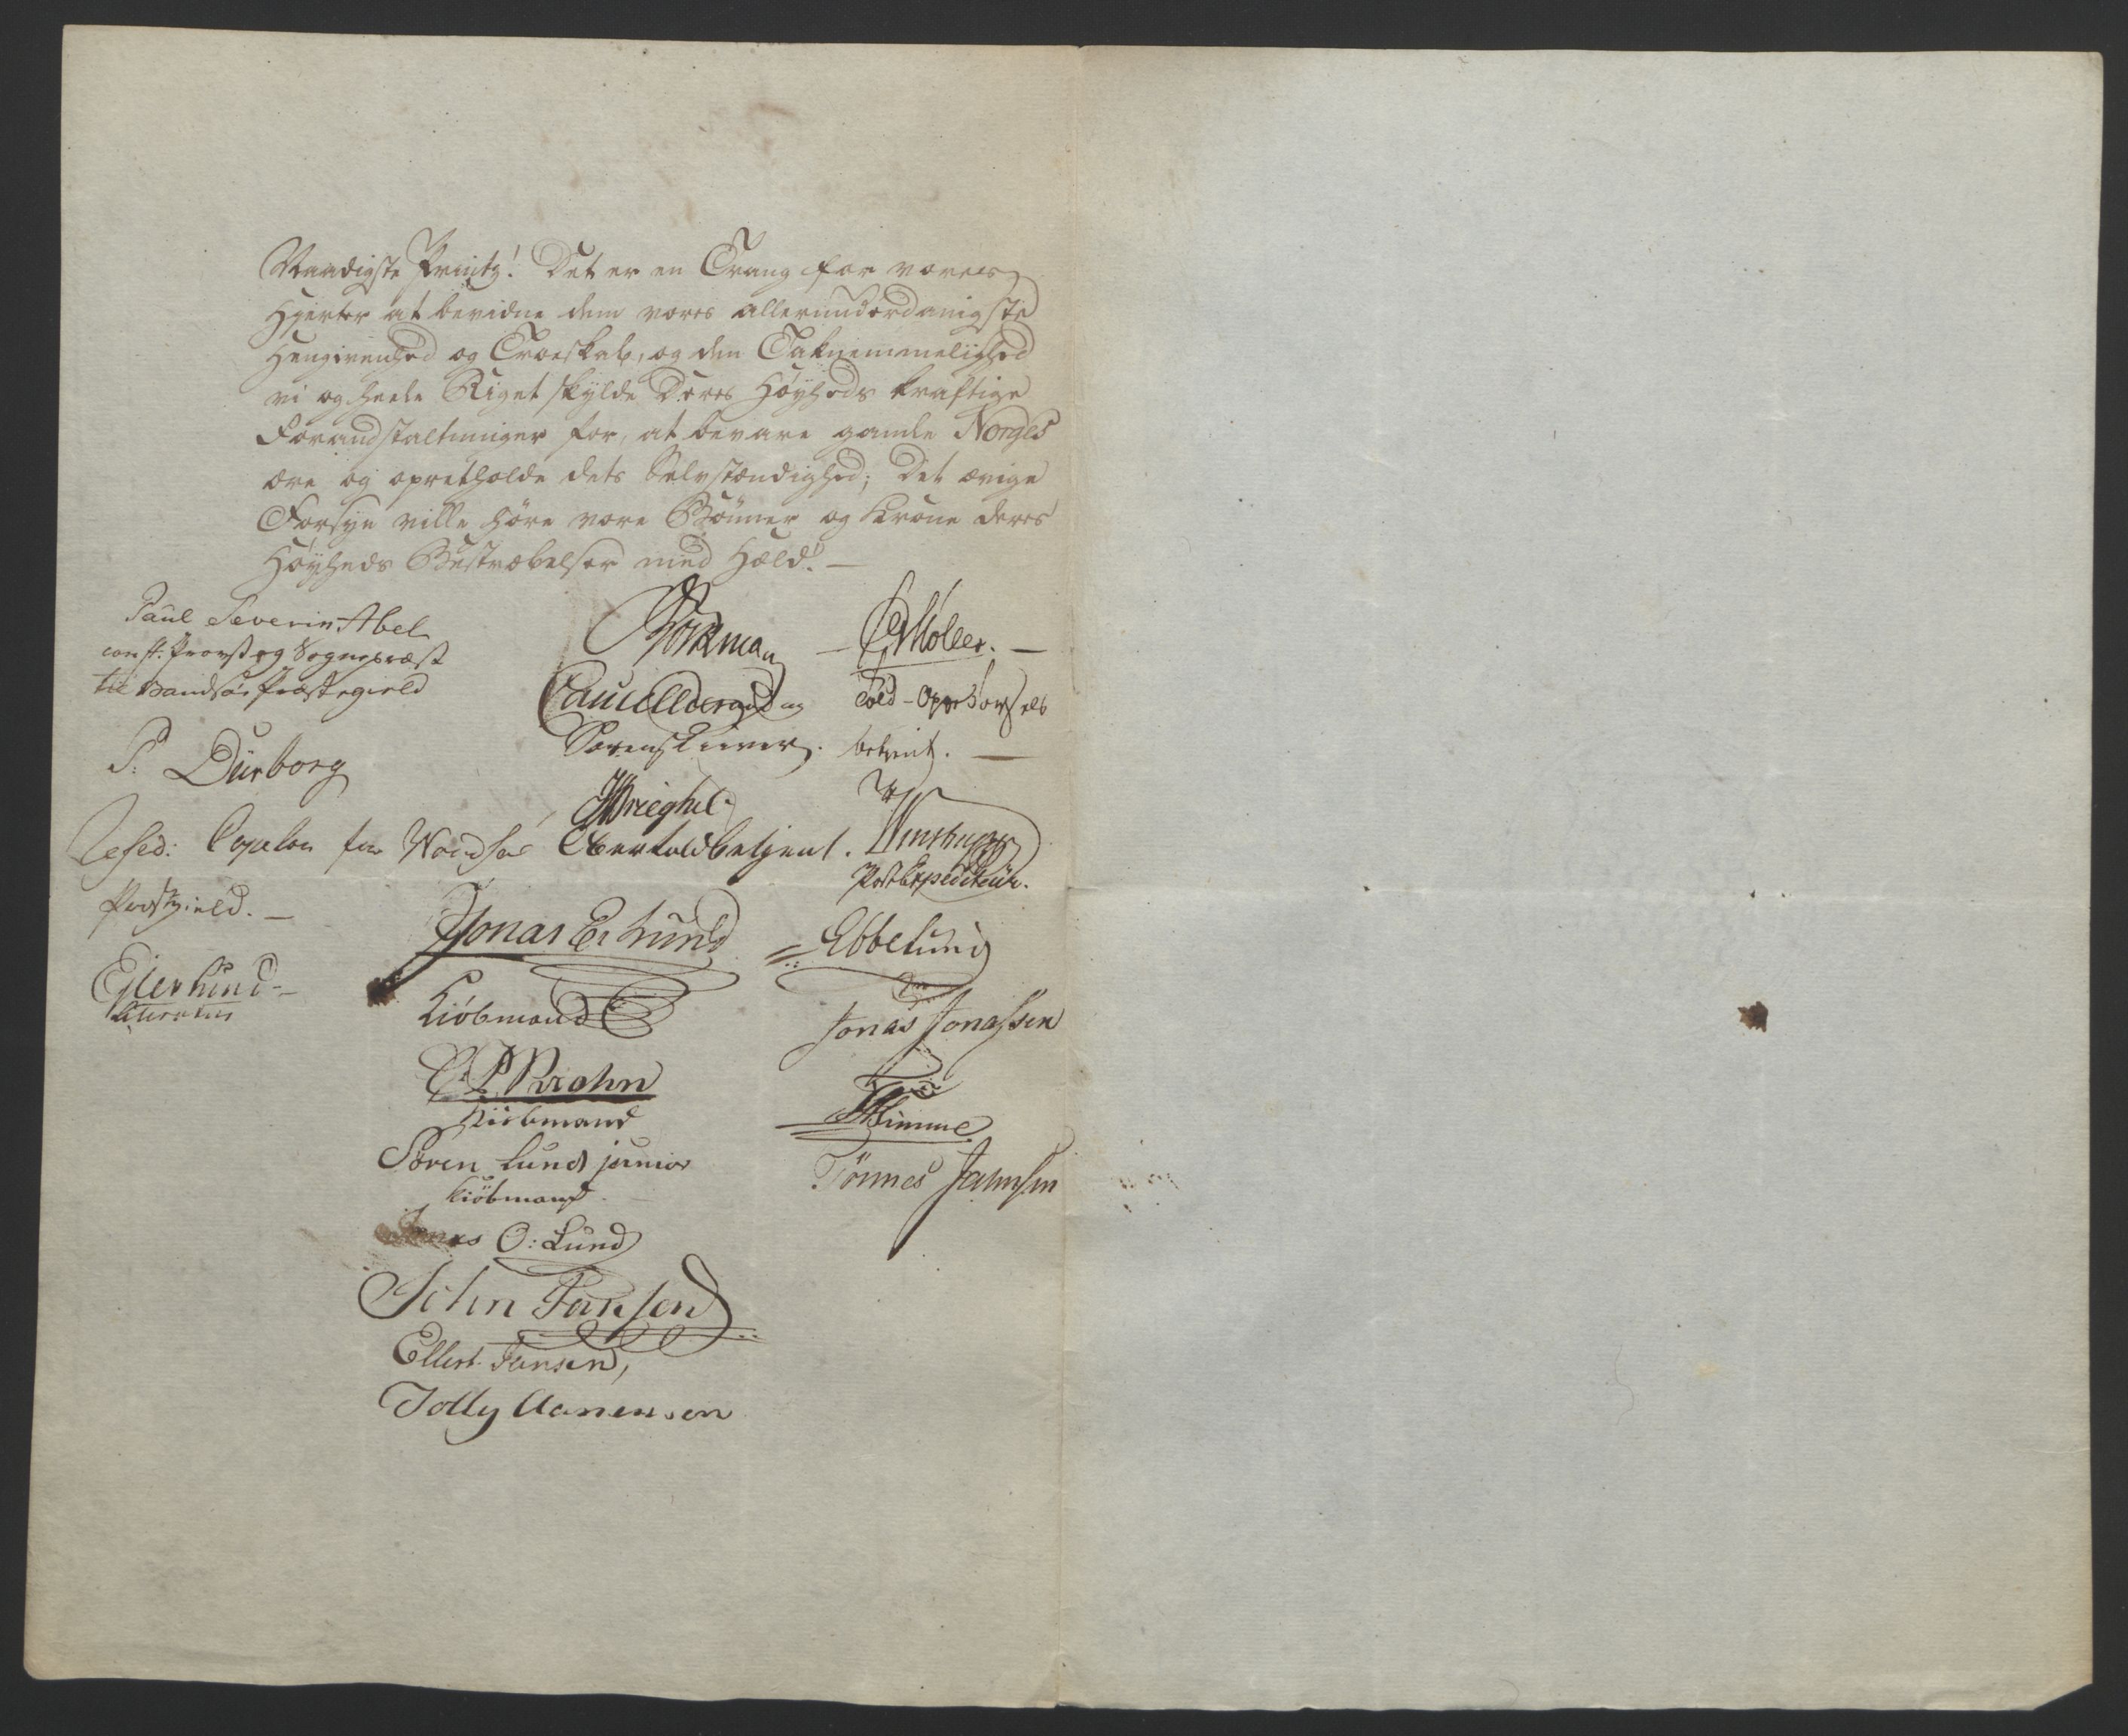 Naadigste Printz! Det er en Trang for vores
Hjerter at bevidne dem vores allerunderdanigste
Hengivenhed og Troeskab, og den Taknemmelighed
vi og heele Riget skylde Deres Høyheds kraftige
Forandstaltninger for, at bevare gamle Norges
ære og opretholde dets Selvstændighed; Det ævige
Forsyn ville høre vore Bönner og krone deres
Høyheds Bestræbelser med Held! —
Paul Severin Abel
const: Provst og Sognepræst
til Vandsøe Præstegield
P: Dürborg
Resid: Capelan for Vandsøe
Præstegield. —
Ejler Lund
Börkman
Cancellieraad og
Sorenskriver.
Overtoldbetjent.
Jonas E: Lund
Kiöbmand
Krohn
Kiöbmand
Sören Lund junior
kiöbmand
Jonas O: Lund
John Jansen
Ellert Jansen,
Tolly Aanensen
Møller. —
Told-Opsörsels
betient. —
PostExpediteur.
Ebbe Lund
Jonas Jonassen
Tönnes Jahnsen